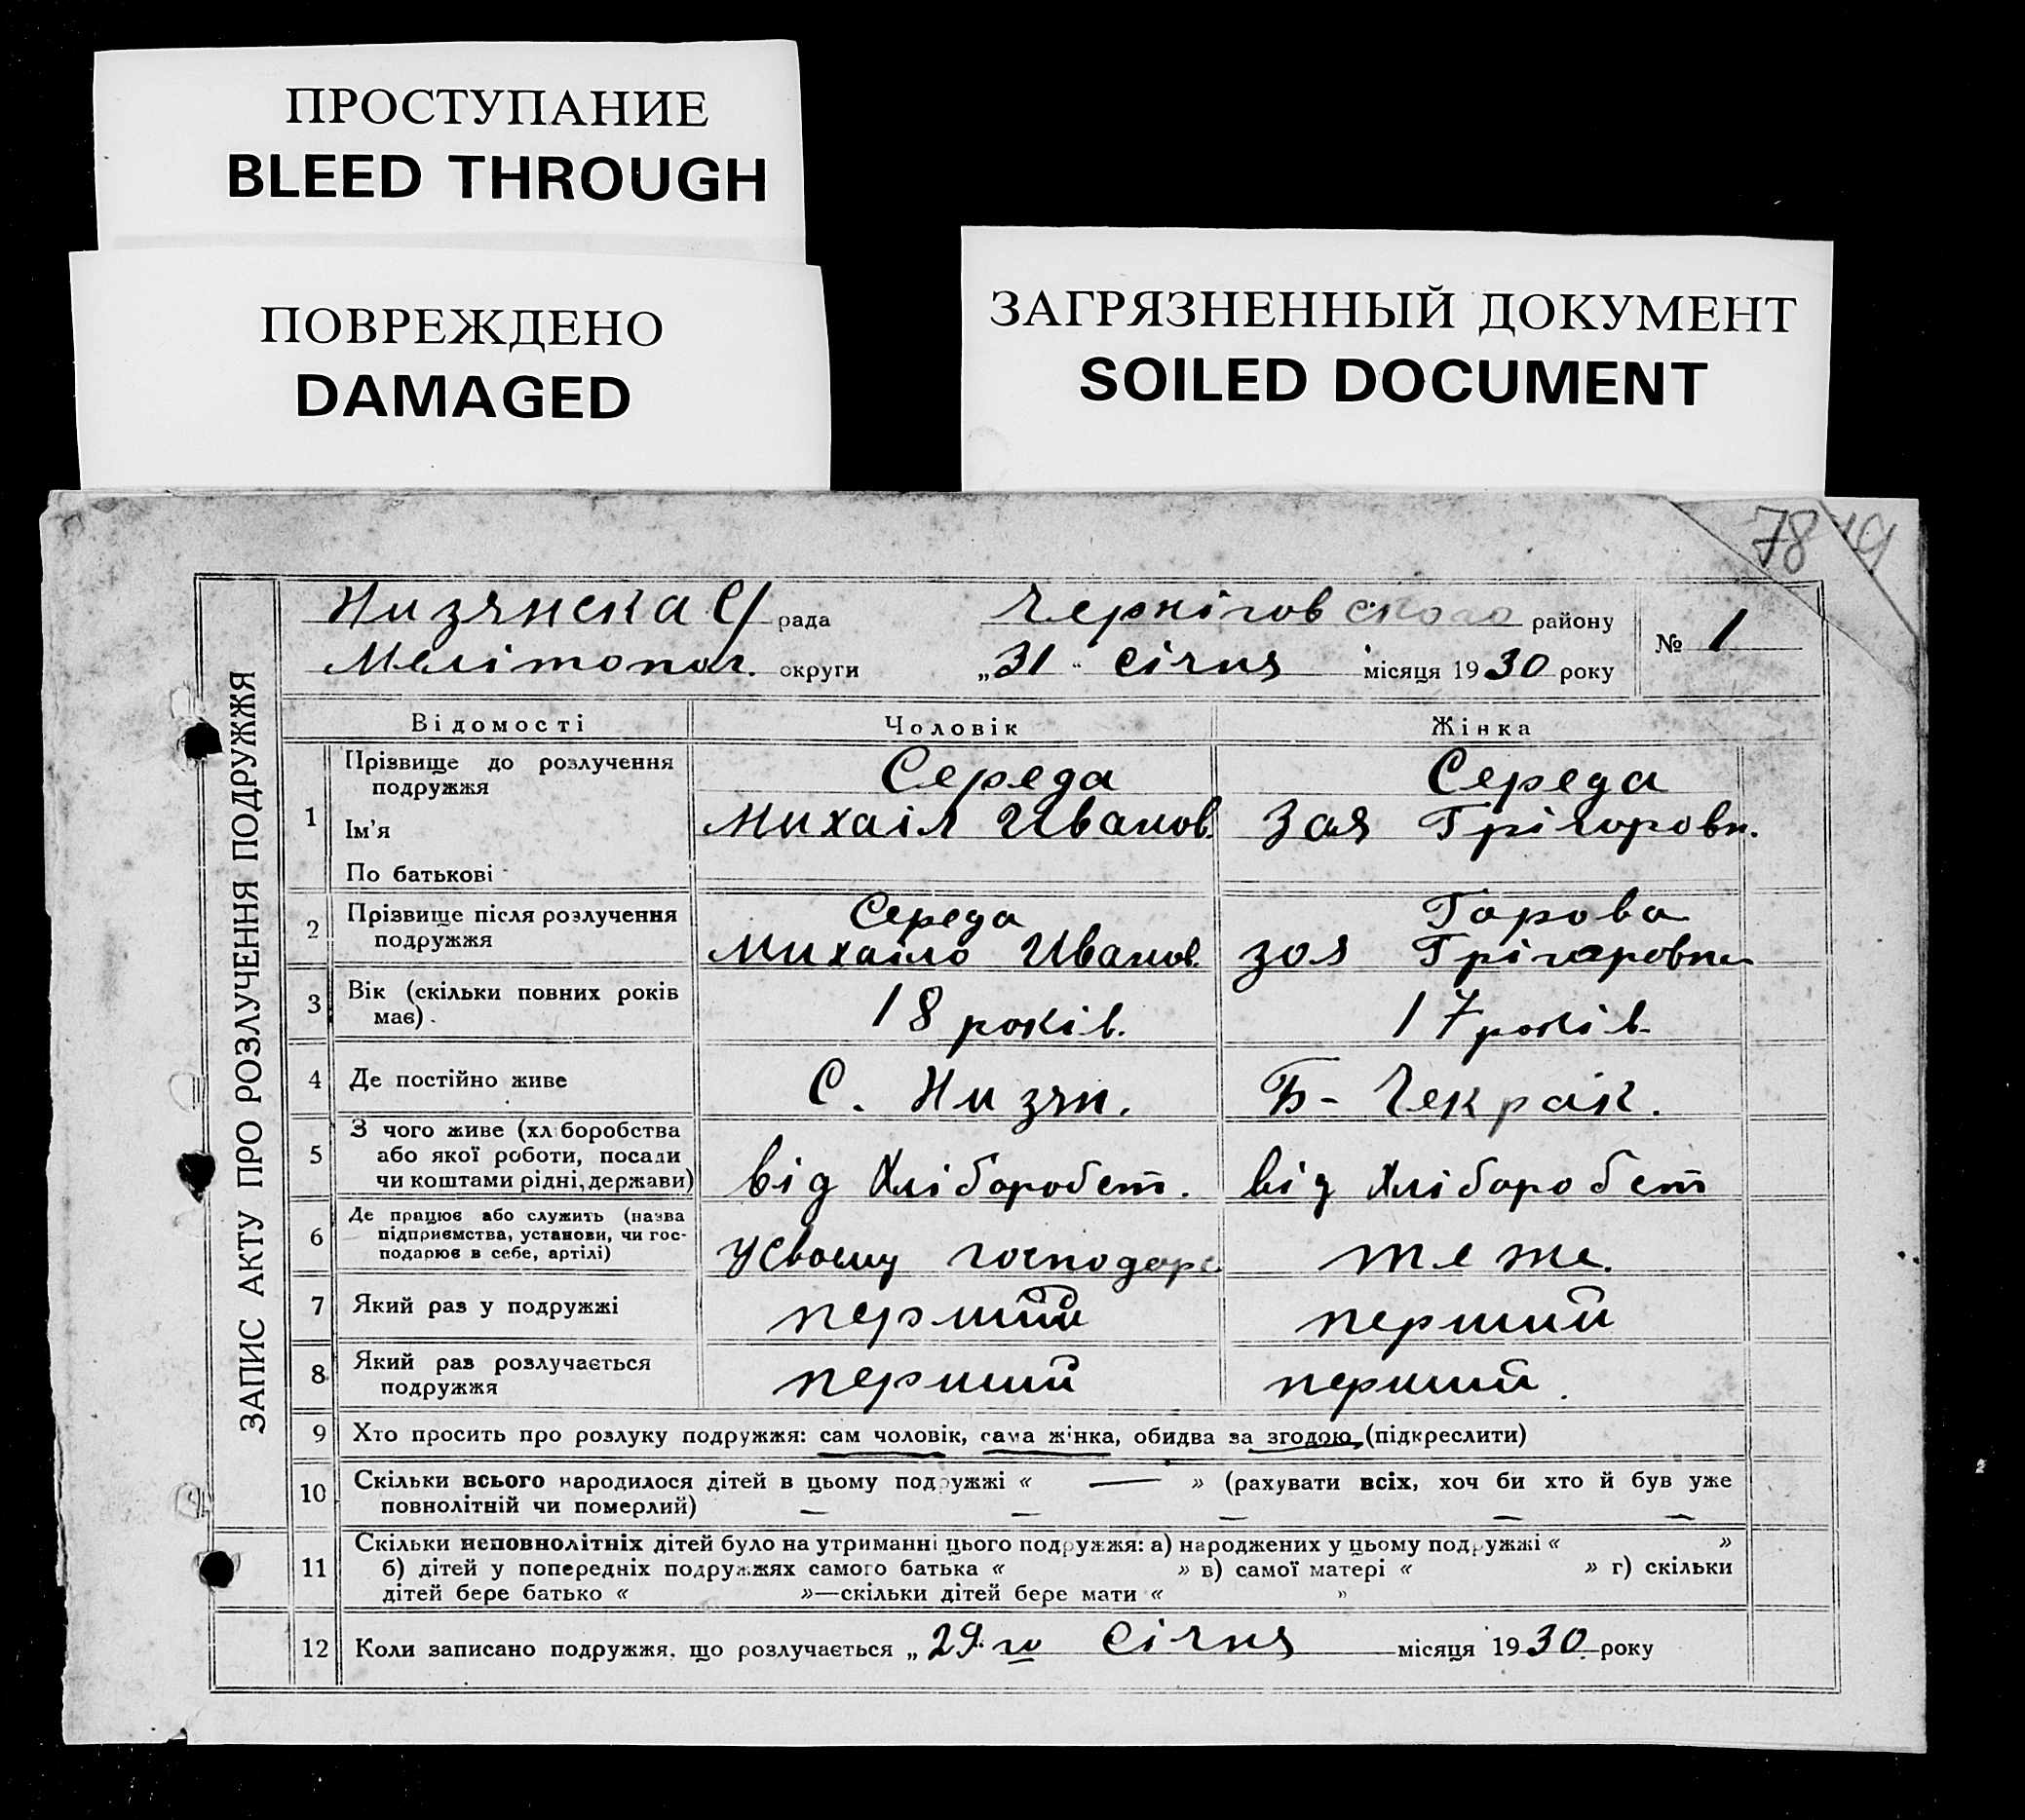 ПРОСТУПАНИЕ
BLEED THROUGH
ПОВРЕЖДЕНО
DAMAGED
ЗАГРЯЗНЕННЫЙ ДОКУМЕНТ
SOILED DOCUMENT
78 19
ЗАПИС АКТУ ПРО РОЗЛУЧЕННЯ ПОДРУЖЖЯ
Низянска С/ рада Черніговского району № 1
Мелітопол. округи „31“ Січня місяця 1930 року
Відомості Чоловік Жінка
1 Прізвище до розлучення подружжя Середа Середа
Ім'я Михаіл Иванов. Зоя Грігоровн.
По батькові
2 Прізвище після розлучення подружжя Середа Горова
Михаіло Иванов. Зоя Грігоровна
3 Вік (скільки повних років має) 18 років. 17 років.
4 Де постійно живе С. Низян. Б-Чекрак.
5 З чого живе (хліборобства або якої роботи, посади чи коштами рідні, держави) від Хліборобст. від Хліборобст
6 Де працює або служить (назва підприємства, установи, чи господарює в себе, артілі) у своєму господарс теже.
7 Який раз у подружжі перший перший
8 Який раз розлучається подружжя перший перший.
9 Хто просить про розлуку подружжя: сам чоловік, сама жінка, обидва за згодою (підкреслити)
10 Скільки всього народилося дітей в цьому подружжі « — » (рахувати всіх, хоч би хто й був уже
повнолітній чи померлий) — — — — —
11 Скільки неповнолітніх дітей було на утриманні цього подружжя: а) народжених у цьому подружжі « »
б) дітей у попередніх подружжях самого батька « » в) самої матері « » г) скільки
дітей бере батько « »—скільки дітей бере мати « »
12 Коли записано подружжя, що розлучається „29го Січня місяця 1930 року